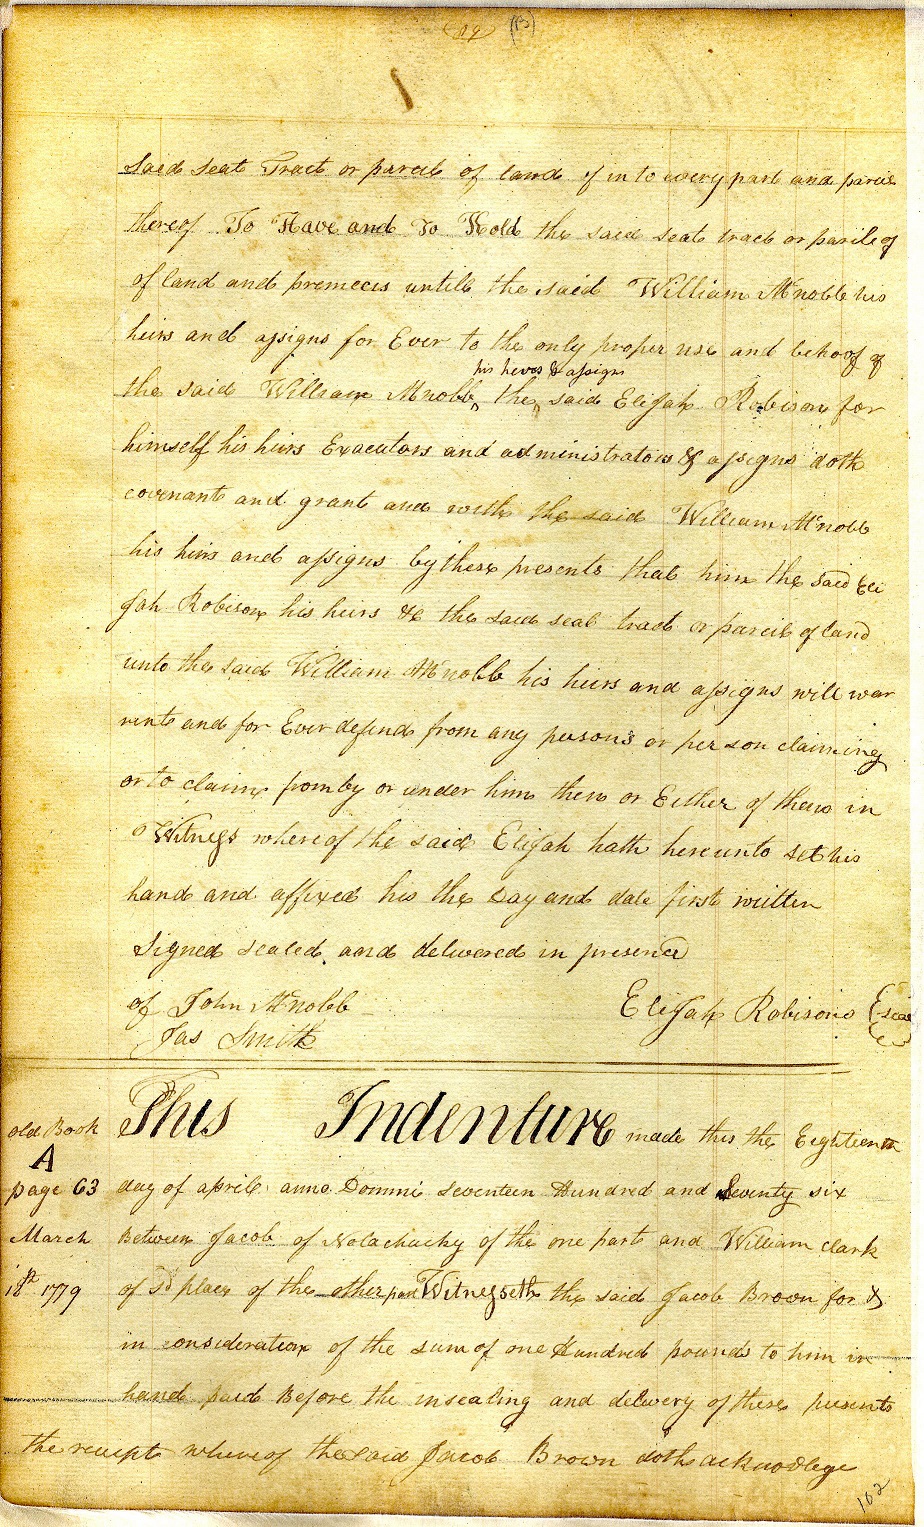 (B)
said seat Tract or parcel of land & in to every part and parcel
thereof To Have and To Hold the said seat tract or parile of
of land and premeces untill the said William Mcnobb his
heirs and assigns for Ever to the only proper use and behoof of
his heirs & assigns
the said William Mcnobb the said Elijah Robison for
himself his heirs Executors and administrators & assigns doth
covenant and grant and with the said William Mcnobb
his heirs and assigns by these presents that him the said Eli
jah Robison his heirs &c the said seat tract or parcel of land
unto the said William Mcnobb his heirs and assigns will war
rent and for Ever defend from any persons or person claiming
or to claim from by or under him them or Either of them in
Witness where of the said Elijah hath here unto set his
hand and affixed his the Day and date first written
Signed sealed and delivered in presence
of John Mcnobb
Elijah Robison
seal
Jas Smith
old Book
A
page 63
March
18th 1779
This Indenture made this the Eighteenth
day of april anno Domini seventeen Hundred and Seventy six
Between Jacob of Nolachucky of the one part and William Clark
of sd place of the other part Witnesseth the said Jacob Brown for &
in consideration of the sum of one Hundred pounds to him in
hand paid Before the insealing and delivery of these presents
the receipt where of the said Jacob Brown doth acknowlege
102